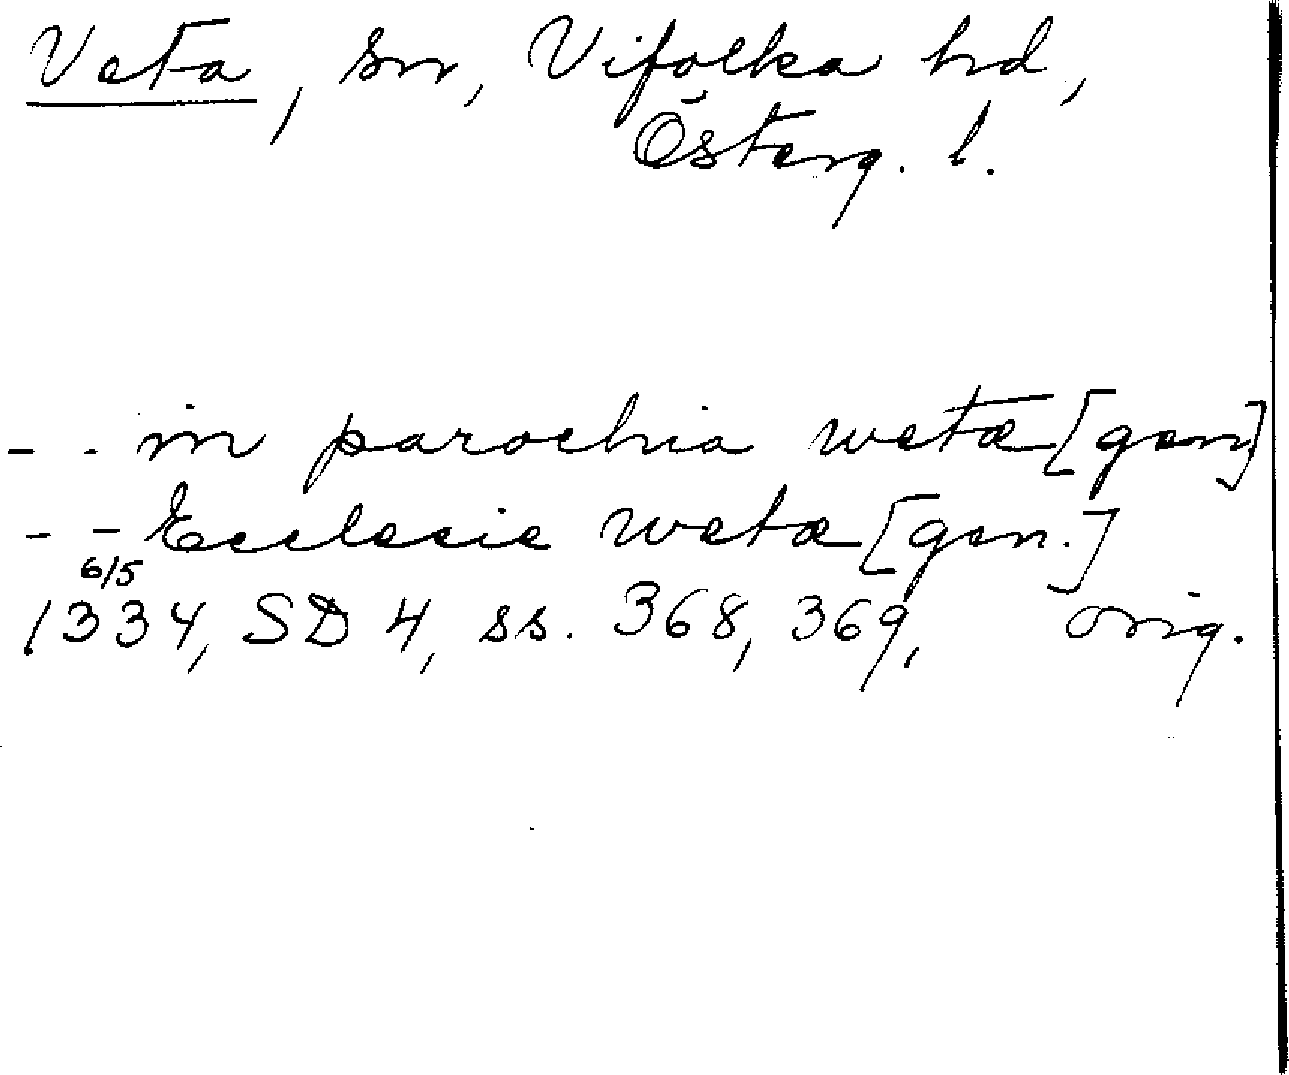 Veta, sn, Vifolka hd,
Österg. l.
- - in parochia weta [gen]
- - Ecclesie weta [gen.]
6/5
1334, SD 4, ss. 368, 369, orig.